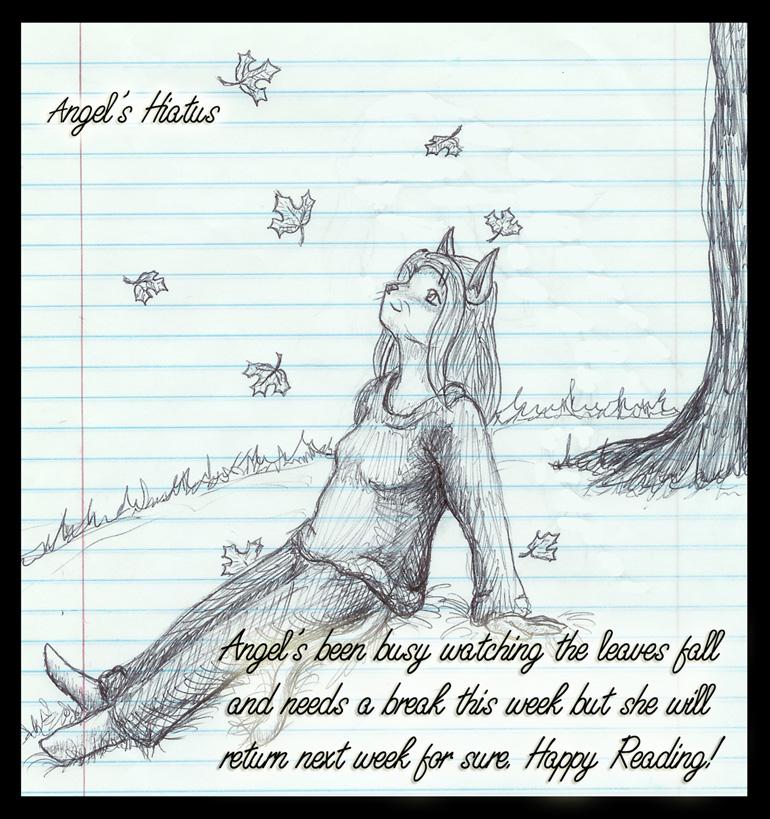 Angel's Hiatus
Angel's been busy watching the leaves fall
and needs a break this week but she will
return next week for sure. Happy Reading!